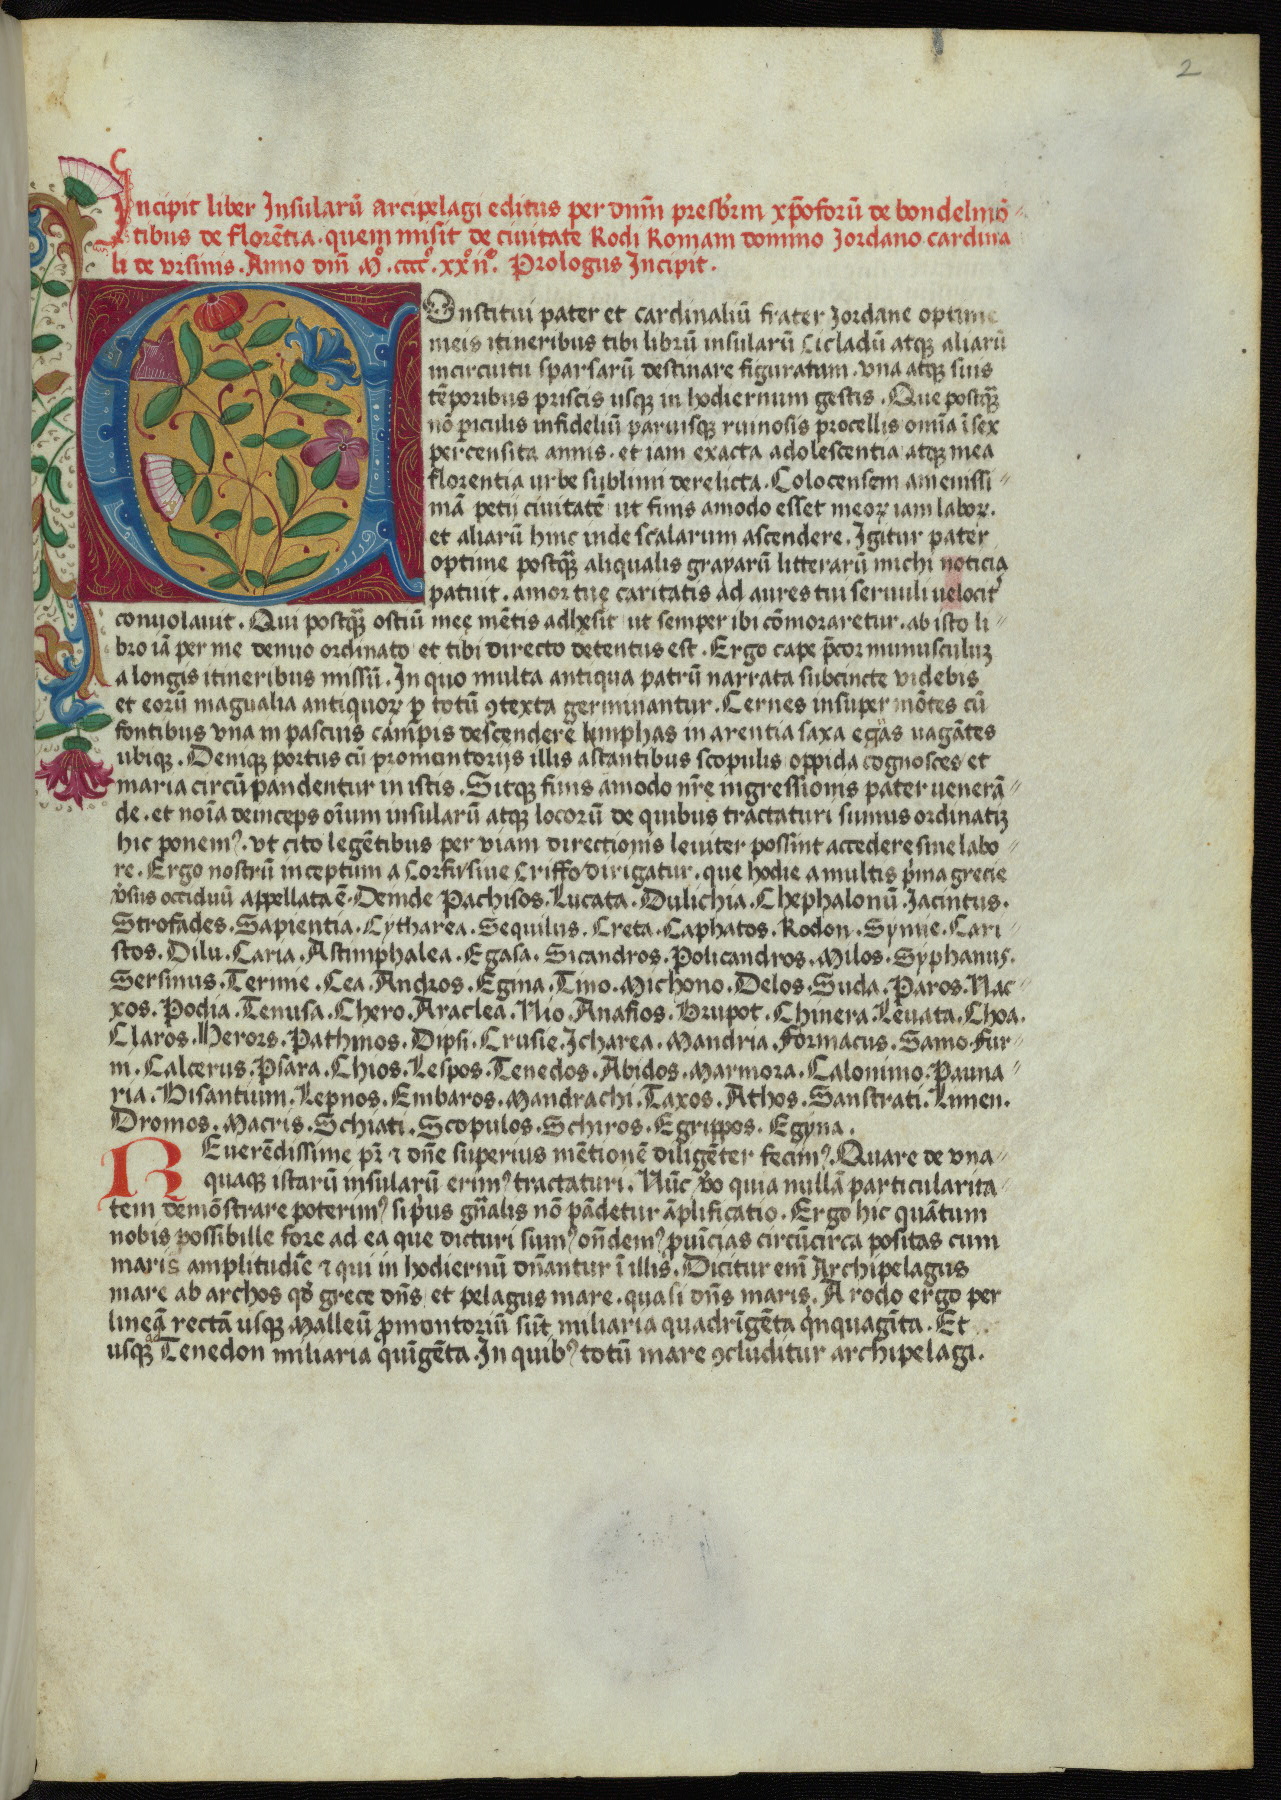 2
Incipit liber Insularũ arcipelagi editus per dñm presbr̃m xp̃oforũ de bondelmõ
tibus de florẽtia. quem misit de ciuitate Rodi Romam domino Jordano cardina
li de vrsinis. Anno dñi Mº. ccccº. xxºijº. Prologus Incipit.
Onstitui pater et cardinaliũ frater Jordane optime
meis itineribus tibi librũ insularũ Cicladũ atqꝫ aliarũ
incircuitu sparsarũ destinare figuratum. vna atqꝫ suis
tẽporibus priscis usqꝫ in hodiernum gestis. Que postqꝫ̃
nõ ꝑiculis infideliũ paruisqꝫ ruinosis procellis omĩa ĩ sex
percensita annis. et iam exacta adolescentia atqꝫ mea
florentia urbe sublimi derelicta. Colocensem amenissi
mã petij ciuitatẽ ut finis amodo esset meoꝝ iam laboꝝ.
et aliarũ hinc inde scalarum ascendere. Igitur pater
optime postqꝫ̃ aliqualis grayarũ litterarũ michi noticia
patuit. amor tuę caritatis ad aures tui seruuli uelocit᷑
conuolauit. Qui postqꝫ̃ ostiũ meę mẽtis adhesit ut semper ibi cõmoraretur. ab isto li
bro iã per me denuo ordinato et tibi directo detentus est. Ergo cape p̃cor munusculuꝫ
a longis itineribus missũ. In quo multa antiqua patrũ narrata subcincte videbis
et eorũ magualia antiquoꝝ ꝓ totũ ꝯtexta germinantur. Cernes insuper mõtes cũ
fontibus vna in pascuis cãmpis descendere limphas in arentia saxa egeas uagãtes
ubiqꝫ. Deniqꝫ portus cũ promontorijs illis astantibus scopulis oppida cognosces et
maria circũ pandentur in istis. Sitqꝫ finis amodo nr̃e ingressionis pater uenerã
de. et noĩa deinceps oĩum insularũ atqꝫ locorũ de quibus tractaturi sumus ordinatiꝫ
hic ponemꝰ. vt cito legẽtibus per viam directionis leuiter possint accedere sine labo
re. Ergo nostrũ inceptum a Corfu siue Criffo dirigatur. que hodie a multis p̃ma grecie
v̉sus occiduũ appellata ẽ. Deinde Pachisos. Lucata. Dulichia. Chephalonũ. Jacintus.
Strofades. Sapientia. Cytharea. Sequilus. Creta. Caphatos. Rodon. Symie. Cari
stos. Dilu. Caria. Astimphalea. Egasa. Sicandros. Policandros. Milos. Syphanus.
Sersinus. Terme. Cea. Andros. Egina. Tino. Michono. Delos. Suda. Paros. Nac
xos. Podia. Tenusa. Chero. Araclea. Nio. Anafios. Brupot. Chinera. Leuata. Choa.
Claros. Herors. Pathmos. Dipsi. Crusie. Icharea. Mandria. Formacus. Samo. Fur
ni. Calcerus. Psara. Chios. Lespos. Tenedos. Abidos. Marmora. Calonimo. Pauna
ria. Bisantium. Lepnos. Embaros. Mandrachi. Taxos. Athos. Sanstrati. Limen.
Dromos. Macris. Schiati. Scopulos. Schiros. Egrippos. Egyna.
REuerẽdissime pr̃ ⁊ dñe superius mẽtionẽ diligẽter fecimꝰ. Quare de vna
quaqꝫ istarũ insularũ erimꝰ tractaturi. Nũc v̉o quia nullã particularita
tem demõstrare poterimꝰ si pᷣus gñalis nõ pãdetur ãplificatio. Ergo hic quãtum
nobis possibille fore ad ea que dicturi sumꝰ oñdemꝰ ꝓuĩcias circũcirca positas cum
maris amplitudĩe ⁊ qui in hodiernũ dñantur ĩ illis. Dicitur enĩ Archipelagus
mare ab archos qð grece dñs et pelagus mare. quasi dñs maris. A rodo ergo per
lineã rectã usqꝫ Malleũ ꝓmontoriũ sũt miliaria quadrĩgẽta qᷣnquagĩta. Et
usqꝫ Tenedon miliaria quĩgẽta. In quibꝰ totũ mare ꝯcluditur archipelagi.